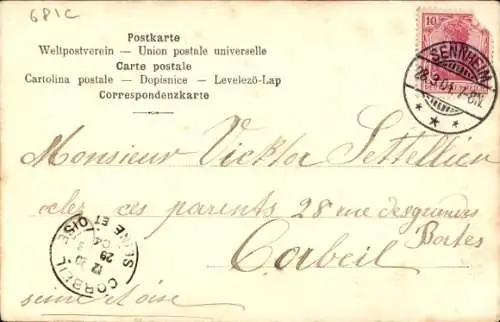 6P1C
Postkarte
Weltpostverein — Union postale universelle
Carte postale
Cartolina postale — Dopisnice — Levelező-Lap
Correspondenzkarte
10
SENNHEIM
28.3.04. 7-8N.
Monsieur Vicktor Settellien
chez ces parents 28 rue des
Bortes
Corbeil
seine & oise
CORBEIL
SEINE ET OISE